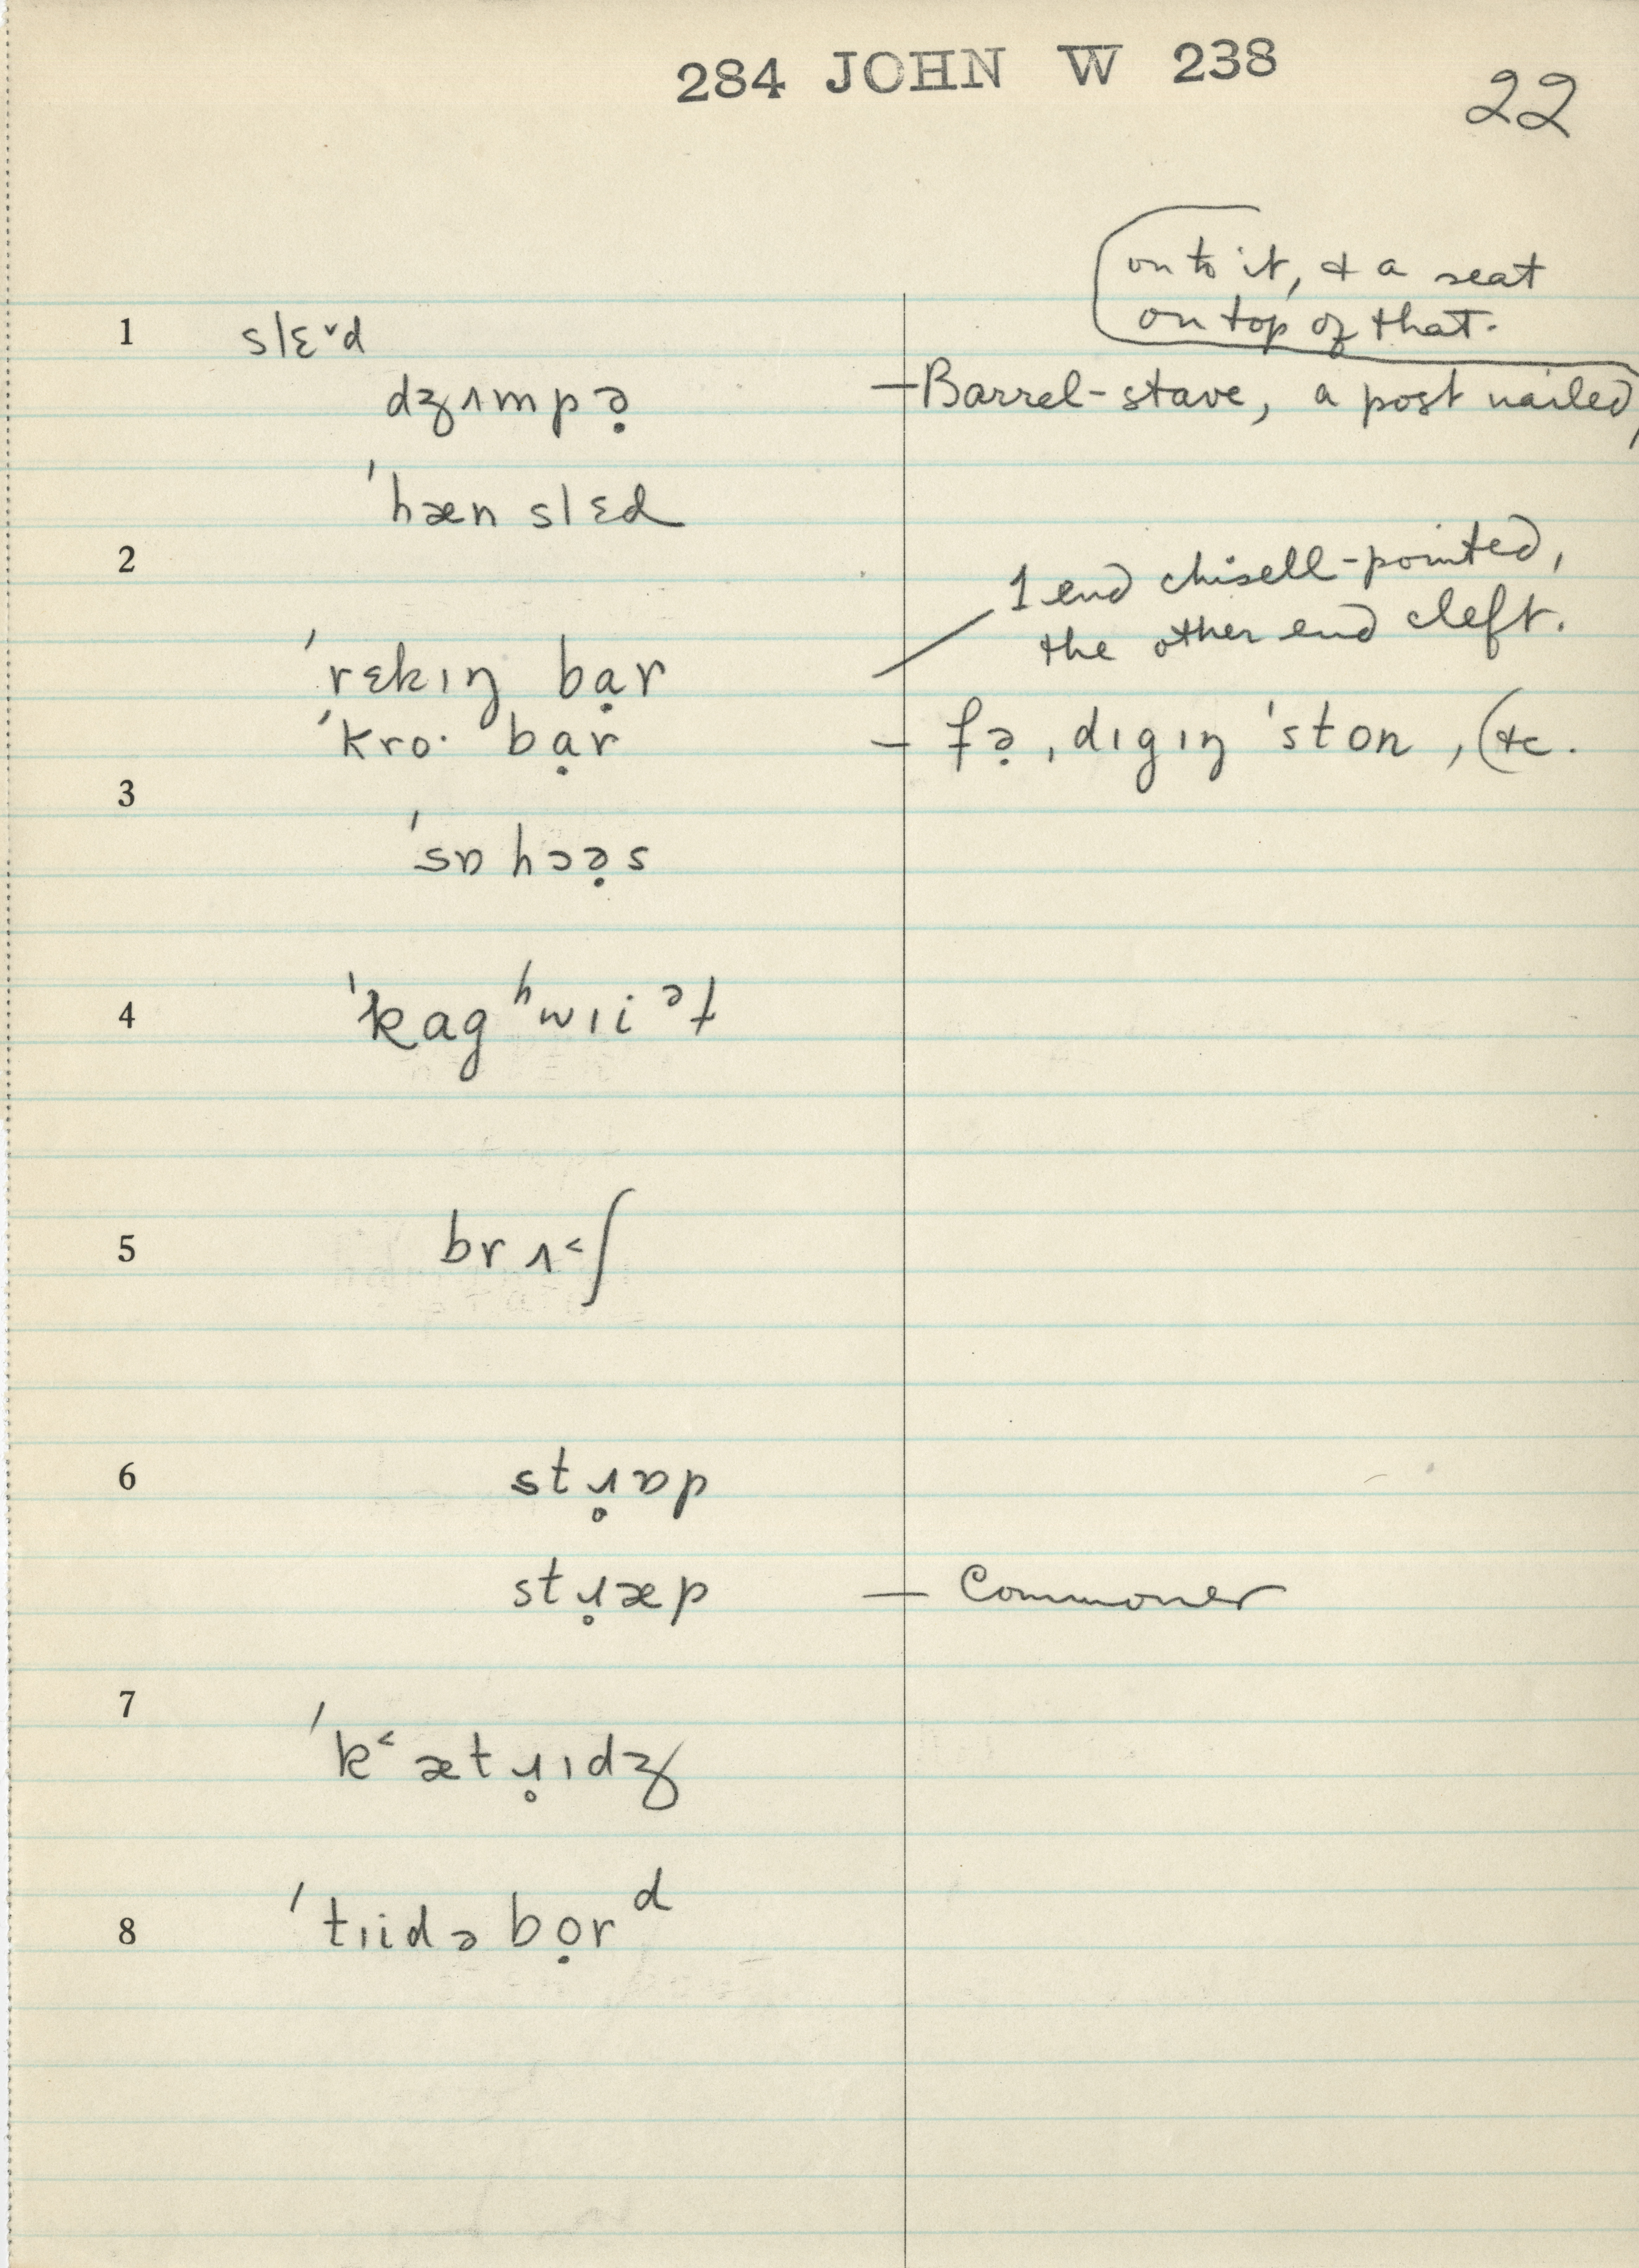 284 JOHN W 238
22
on to it, & a seat
on top of that.
1 slɛ˅d
dʒɪmpə̣ — Barrel-stave, a post nailed,
ˈhæn slɛd
2
1 end chisell-pointed,
the other end cleft.
ˈrɛkɪŋ bạr
ˈkro· bạr — fə̣ ˌdɪgɪŋ ˈston, &c.
3
ˈsɒ hɔə̣s
4 ˈkag ʰwɪi ᵊɫ
5 brɪ˂ʃ
6 stɹ̥ɒp
stɹ̥æp — Commoner
7
ˈk˂ætɹ̥ɪdʒ
8 ˈtɪidə bọrᵈ